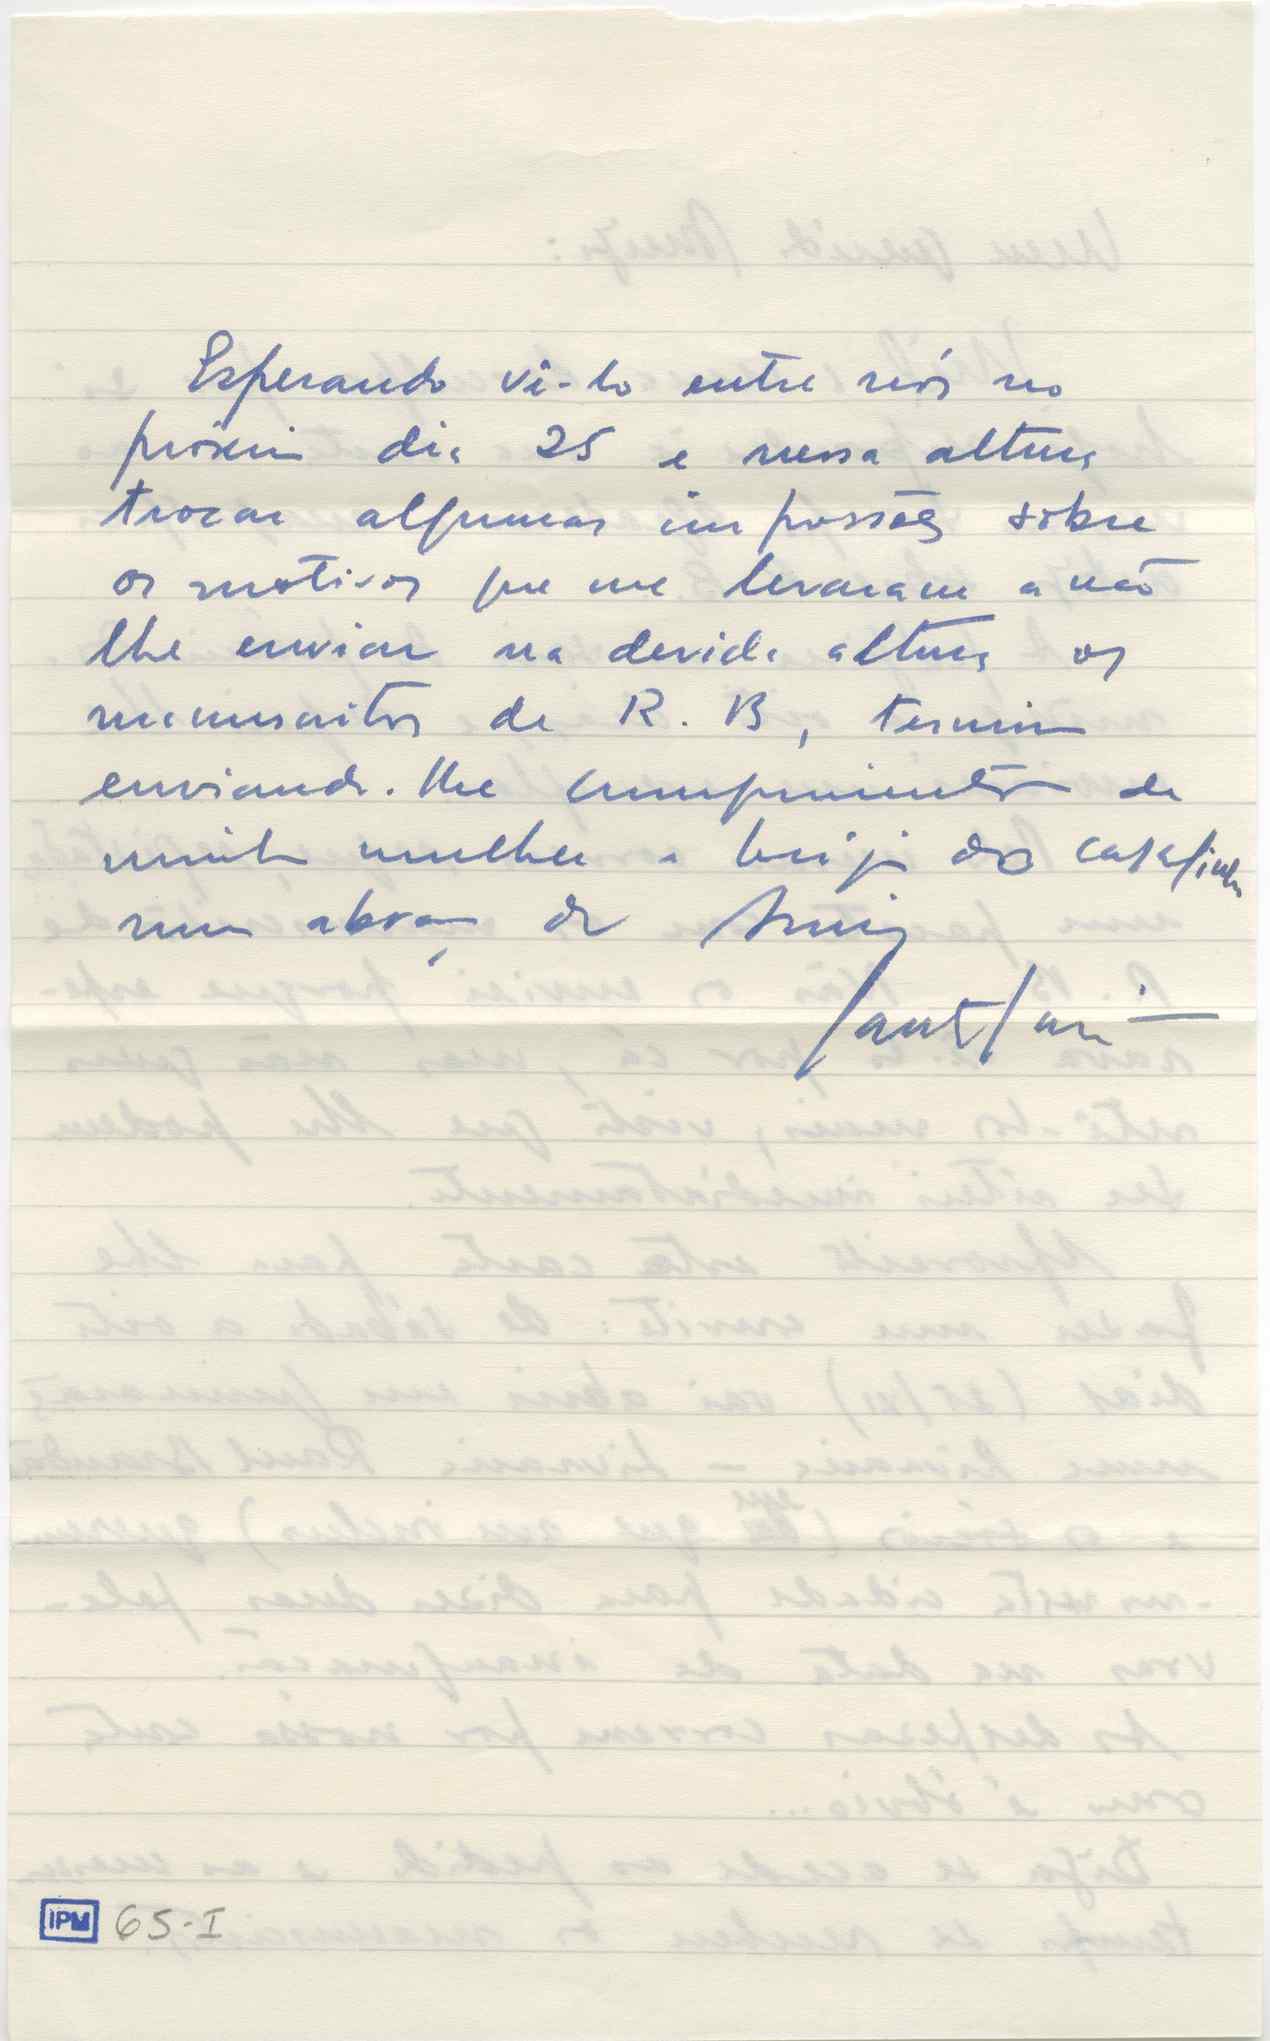 Esperando vê-lo entre nós no
próximo dia 25 e nessa altura
trocar algumas impressões sobre
os motivos que me levaram a não
lhe enviar na devida altura os
manuscritos de R. B, termino
enviando-lhe cumprimentos de
minha mulher e beijos dos
num abraço do Amigo
IPM 65-I